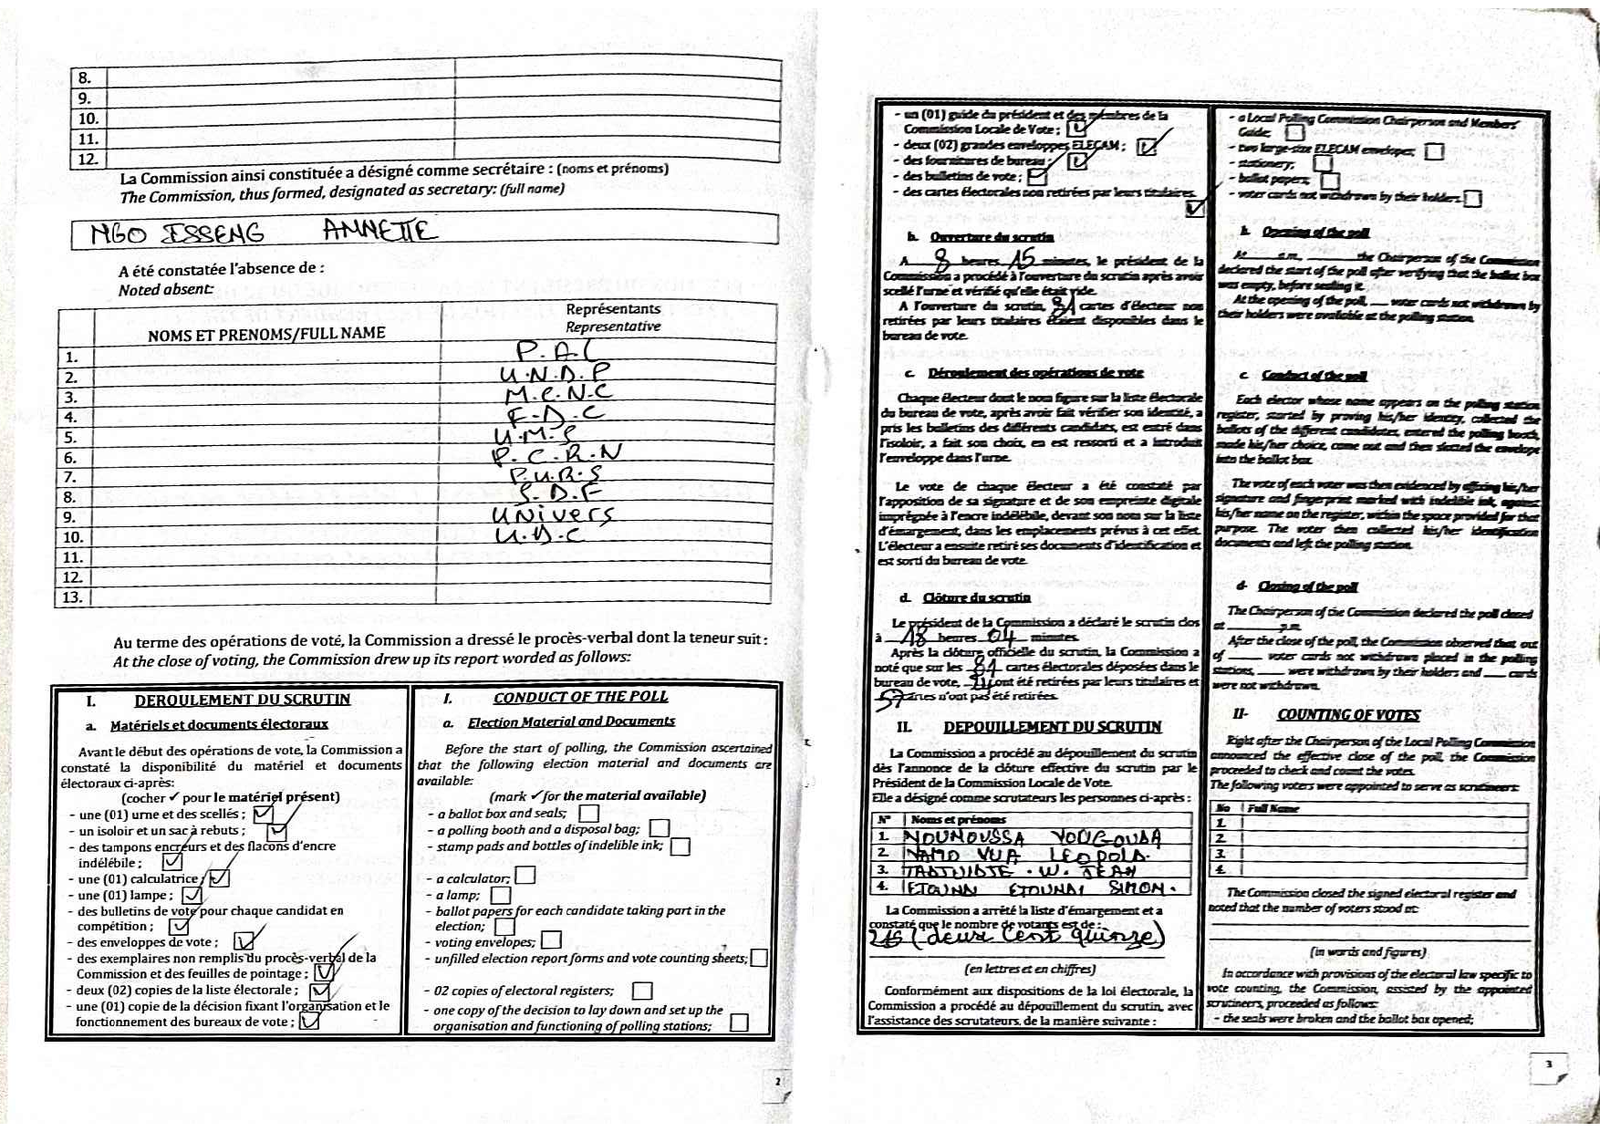 8.
9.
10.
11.
12.
La Commission ainsi constituée a désigné comme secrétaire : (noms et prénoms)
The Commission, thus formed, designated as secretary: (full name)
NGO ISSENG ANNETTE
A été constatée l'absence de :
Noted absent:
NOMS ET PRENOMS/FULL NAME
Représentants
Representative
1. P.A.L
2. U.N.D.P
3. M.C.N.C
4. F.D.C
5. U.M.S
6. P.C.R.N
7. P.U.R.S
8. S.D.F
9. UNivers
10. U.D.C
11.
12.
13.
Au terme des opérations de voté, la Commission a dressé le procès-verbal dont la teneur suit :
At the close of voting, the Commission drew up its report worded as follows:
I. DEROULEMENT DU SCRUTIN
a. Matériels et documents électoraux
Avant le début des opérations de vote, la Commission a
constaté la disponibilité du matériel et documents
électoraux ci-après:
(cocher ✓ pour le matériel présent)
- une (01) urne et des scellés ;
- un isoloir et un sac à rebuts ;
- des tampons encreurs et des flacons d'encre
indélébile ;
- une (01) calculatrice ;
- une (01) lampe ;
- des bulletins de vote pour chaque candidat en
compétition ;
- des enveloppes de vote ;
- des exemplaires non remplis du procès-verbal de la
Commission et des feuilles de pointage ;
- deux (02) copies de la liste électorale ;
- une (01) copie de la décision fixant l'organisation et le
fonctionnement des bureaux de vote ;
I. CONDUCT OF THE POLL
a. Election Material and Documents
Before the start of polling, the Commission ascertained
that the following election material and documents are
available:
(mark ✓ for the material available)
- a ballot box and seals;
- a polling booth and a disposal bag;
- stamp pads and bottles of indelible ink;
- a calculator;
- a lamp;
- ballot papers for each candidate taking part in the
election;
- voting envelopes;
- unfilled election report forms and vote counting sheets;
- 02 copies of electoral registers;
- one copy of the decision to lay down and set up the
organisation and functioning of polling stations;
2
- un (01) guide du président et des membres de la
Commission Locale de Vote ;
- deux (02) grandes enveloppes ELECAM ;
- des fournitures de bureau ;
- des bulletins de vote ;
- des cartes électorales non retirées par leurs titulaires.
b. Ouverture du scrutin
A 8 heures 15 minutes, le président de la
Commission a procédé à l'ouverture du scrutin après avoir
scellé l'urne et vérifié qu'elle était vide.
A l'ouverture du scrutin, 81 cartes d'électeur non
retirées par leurs titulaires étaient disponibles dans le
bureau de vote.
c. Déroulement des opérations de vote
Chaque électeur dont le nom figure sur la liste électorale
du bureau de vote, après avoir fait vérifier son identité, a
pris les bulletins des différents candidats, est entré dans
l'isoloir, a fait son choix, en est ressorti et a introduit
l'enveloppe dans l'urne.
Le vote de chaque électeur a été constaté par
l'apposition de sa signature et de son empreinte digitale
imprégnée à l'encre indélébile, devant son nom sur la liste
d'émargement, dans les emplacements prévus à cet effet.
L'électeur a ensuite retiré ses documents d'identification et
est sorti du bureau de vote.
d. Clôture du scrutin
Le président de la Commission a déclaré le scrutin clos
à 18 heures 04 minutes.
Après la clôture officielle du scrutin, la Commission a
noté que sur les 81 cartes électorales déposées dans le
bureau de vote, ont été retirées par leurs titulaires et
57 cartes n'ont pas été retirées.
II. DEPOUILLEMENT DU SCRUTIN
La Commission a procédé au dépouillement du scrutin
dès l'annonce de la clôture effective du scrutin par le
Président de la Commission Locale de Vote.
Elle a désigné comme scrutateurs les personnes ci-après :
N° Noms et prénoms
1. NOUMOUSSA YOUGOUDA
2. NAMO VUA LEOPOLD.
3. W. JEAN
4. ETOUNDI ETOUNDI SIMON.
La Commission a arrêté la liste d'émargement et a
constaté que le nombre de votants est de :
215 (deux cent quinze)
(en lettres et en chiffres)
Conformément aux dispositions de la loi électorale, la
Commission a procédé au dépouillement du scrutin, avec
l'assistance des scrutateurs, de la manière suivante :
- a Local Polling Commission Chairperson and Members'
Guide;
- two large-size ELECAM envelopes;
- stationery;
- ballot papers;
- voter cards not withdrawn by their holders.
b. Opening of the poll
At a.m, the Chairperson of the Commission
declared the start of the poll after verifying that the ballot box
was empty, before sealing it.
At the opening of the poll, voter cards not withdrawn by
their holders were available at the polling station.
c. Conduct of the poll
Each elector whose name appears on the polling station
register, started by proving his/her identity, collected the
ballots of the different candidates, entered the polling booth,
made his/her choice, came out and then slotted the envelope
into the ballot box.
The vote of each voter was then evidenced by affixing his/her
signature and fingerprint marked with indelible ink, against
his/her name on the register, within the space provided for that
purpose. The voter then collected his/her identification
documents and left the polling station.
d- Closing of the poll
The Chairperson of the Commission declared the poll closed
at p.m.
After the close of the poll, the Commission observed that out
of voter cards not withdrawn placed in the polling
stations, were withdrawn by their holders and cards
were not withdrawn.
II- COUNTING OF VOTES
Right after the Chairperson of the Local Polling Commission
announced the effective close of the poll, the Commission
proceeded to check and count the votes.
The following voters were appointed to serve as scrutineers:
No Full Name
1.
2.
3.
4.
The Commission closed the signed electoral register and
noted that the number of voters stood at:
(in words and figures)
In accordance with provisions of the electoral law specific to
vote counting, the Commission, assisted by the appointed
scrutineers, proceeded as follows:
- the seals were broken and the ballot box opened;
3